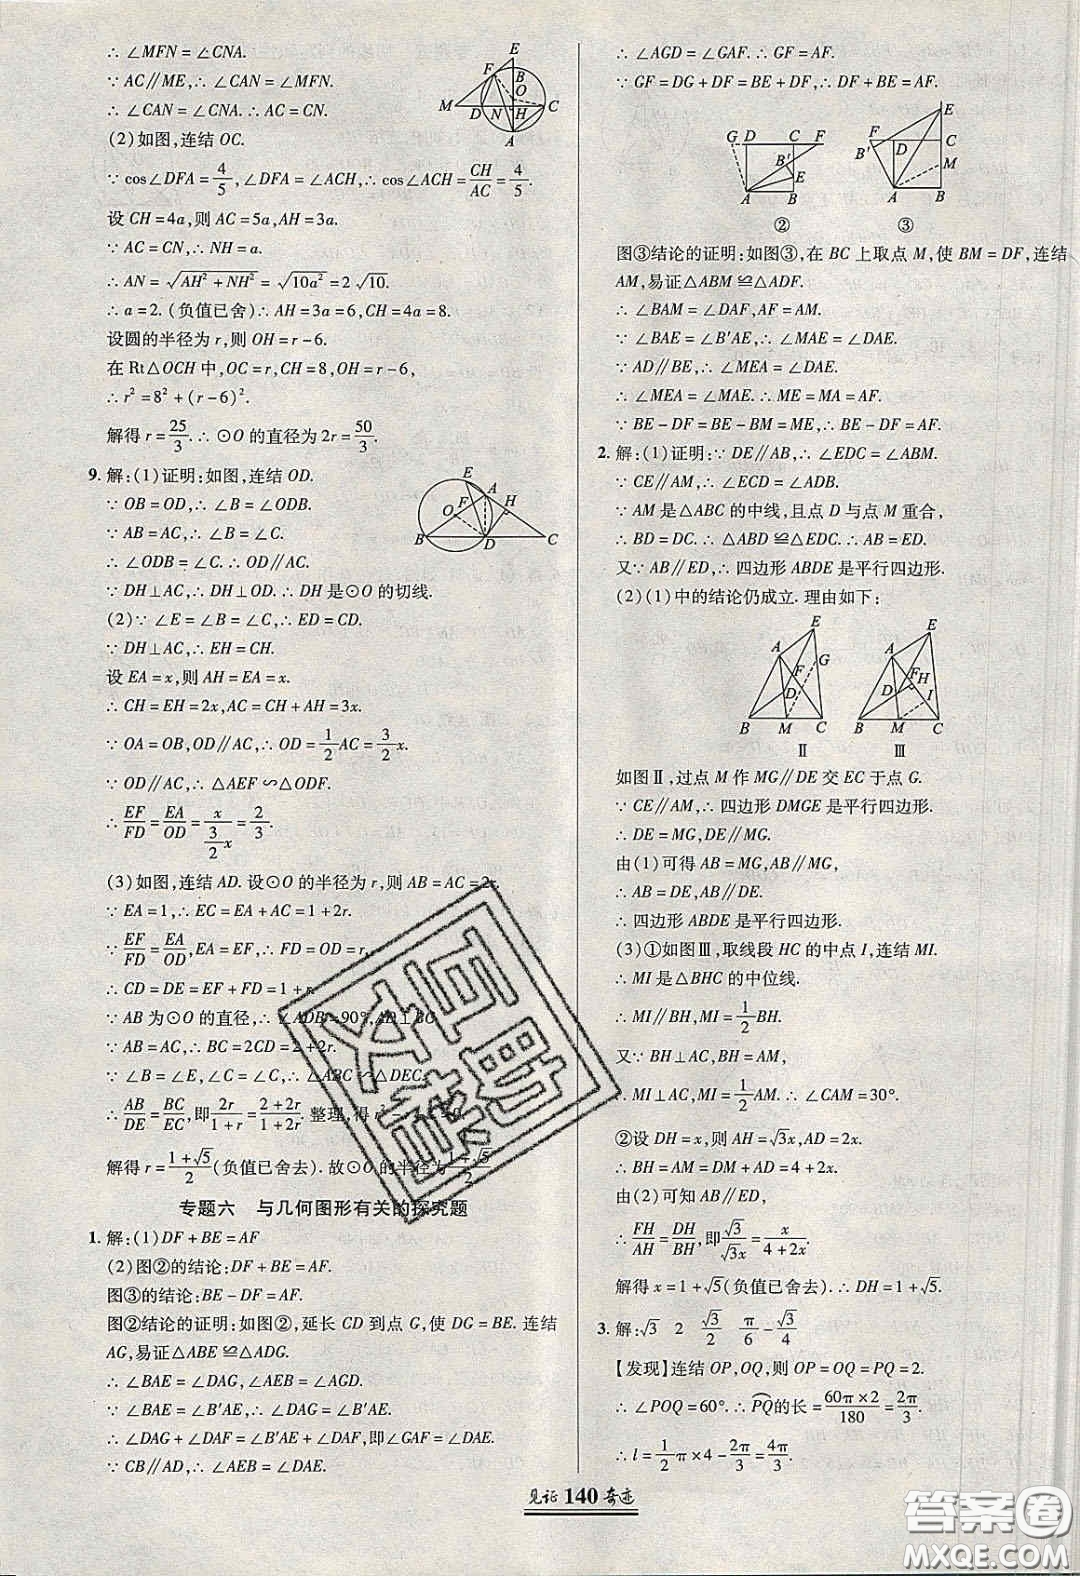 ∴ ∠MFN = ∠CNA.
∵ AC∥ME,∴ ∠CAN = ∠MFN.
∴ ∠CAN = ∠CNA. ∴ AC = CN.
(2)如图,连结 OC.
∵ cos∠DFA = 4/5, ∠DFA = ∠ACH,∴ cos∠ACH = CH/AC = 4/5.
设 CH = 4a,则 AC = 5a,AH = 3a.
∵ AC = CN,∴ NH = a.
∴ AN = √(AH² + NH²) = √(10a²) = 2√10.
∴ a = 2. (负值已舍)∴ AH = 3a = 6,CH = 4a = 8.
设圆的半径为 r,则 OH = r − 6.
在 Rt△OCH 中,OC = r,CH = 8,OH = r − 6,
∴ r² = 8² + (r − 6)².
解得 r = 25/3. ∴ ⊙O 的直径为 2r = 50/3.
E F B O M D N H C A
9. 解:(1)证明:如图,连结 OD.
∵ OB = OD,∴ ∠B = ∠ODB.
∵ AB = AC,∴ ∠B = ∠C.
∴ ∠ODB = ∠C. ∴ OD∥AC.
∵ DH⊥AC,∴ DH⊥OD. ∴ DH 是⊙O 的切线.
(2)∵ ∠E = ∠B = ∠C,∴ ED = CD.
∵ DH⊥AC,∴ EH = CH.
设 EA = x,则 AH = EA = x.
∴ CH = EH = 2x,AC = CH + AH = 3x.
∵ OA = OB,OD∥AC,∴ OD = 1/2 AC = 3/2 x.
∵ OD∥AC,∴ △AEF ∽△ODF.
∴ EF/FD = EA/OD = x/(3/2 x) = 2/3.
E A F H O B D C
(3)如图,连结 AD. 设⊙O 的半径为 r,则 AB = AC = 2r.
∵ EA = 1,∴ EC = EA + AC = 1 + 2r.
∵ EF/FD = EA/OD, EA = EF,∴ FD = OD = r.
∴ CD = DE = EF + FD = 1 + r.
∵ AB 为⊙O 的直径,∴ ∠ADB = 90°,AD⊥BC.
∵ AB = AC,∴ BC = 2CD = 2 + 2r.
∵ ∠B = ∠E, ∠C = ∠C,∴ △ABC ∽△DEC.
∴ AB/DE = BC/EC,即 2r/(1 + r) = (2 + 2r)/(1 + 2r). 整理,得
解得 r = (1 + √5)/2 (负值已舍去). 故⊙O 的半径为 (1 + √5)/2
专题六 与几何图形有关的探究题
1. 解:(1)DF + BE = AF
(2)图②的结论:DF + BE = AF.
图③的结论:BE − DF = AF.
图②结论的证明:如图②,延长 CD 到点 G,使 DG = BE. 连结
AG,易证△ABE ≌△ADG.
∴ ∠BAE = ∠DAG, ∠AEB = ∠AGD.
∵ ∠BAE = ∠B′AE,∴ ∠DAG = ∠B′AE.
∴ ∠DAG + ∠DAF = ∠B′AE + ∠DAF,即∠GAF = ∠DAE.
∵ CB∥AD,∴ ∠AEB = ∠DAE.
∴ ∠AGD = ∠GAF. ∴ GF = AF.
∵ GF = DG + DF = BE + DF,∴ DF + BE = AF.
G D C F B′ E A B
②
E F D C B′ M A B
③
图③结论的证明:如图③,在 BC 上取点 M,使 BM = DF,连结
AM,易证△ABM ≌△ADF.
∴ ∠BAM = ∠DAF,AF = AM.
∵ ∠BAE = ∠B′AE,∴ ∠MAE = ∠DAE.
∵ AD∥BE,∴ ∠MEA = ∠DAE.
∴ ∠MEA = ∠MAE. ∴ ME = MA = AF.
∵ BE − DF = BE − BM = ME,∴ BE − DF = AF.
2. 解:(1)证明:∵ DE∥AB,∴ ∠EDC = ∠ABM.
∵ CE∥AM,∴ ∠ECD = ∠ADB.
∵ AM 是△ABC 的中线,且点 D 与点 M 重合,
∴ BD = DC. ∴ △ABD ≌△EDC. ∴ AB = ED.
又∵ AB∥ED,∴ 四边形 ABDE 是平行四边形.
(2)(1)中的结论仍成立. 理由如下:
E A F G D B M C
Ⅱ
E A F H D I B M C
Ⅲ
如图Ⅱ,过点 M 作 MG∥DE 交 EC 于点 G.
∵ CE∥AM,∴ 四边形 DMGE 是平行四边形.
∴ DE = MG,DE∥MG.
由(1)可得 AB = MG,AB∥MG,
∴ AB = DE,AB∥DE.
∴ 四边形 ABDE 是平行四边形.
(3)①如图Ⅲ,取线段 HC 的中点 I,连结 MI.
∴ MI 是△BHC 的中位线.
∴ MI∥BH,MI = 1/2 BH.
又∵ BH⊥AC,BH = AM,
∴ MI⊥AC,MI = 1/2 AM. ∴ ∠CAM = 30°.
②设 DH = x,则 AH = √3x,AD = 2x.
∴ AM = DM + AD = 4 + 2x. ∴ BH = 4 + 2x.
由(2)可知,四边形 ABDE 是平行四边形,∴ DF∥AB.
∴ FH/AH = DH/BH,即 √3/(√3x) = x/(4 + 2x).
解得 x = 1 + √5(负值已舍去). ∴ DH = 1 + √5.
3. 解:√3 2 √3/2 π/6 − √3/4
【发现】连结 OP,OQ,则 OP = OQ = PQ = 2.
∴ ∠POQ = 60°. ∴ PQ的长 = 60π × 2/180 = 2π/3.
∴ l = 1/2 π × 4 − 2π/3 = 4π/3.
见证 140 奇迹
互助文答
答案圈
MXQE.COM